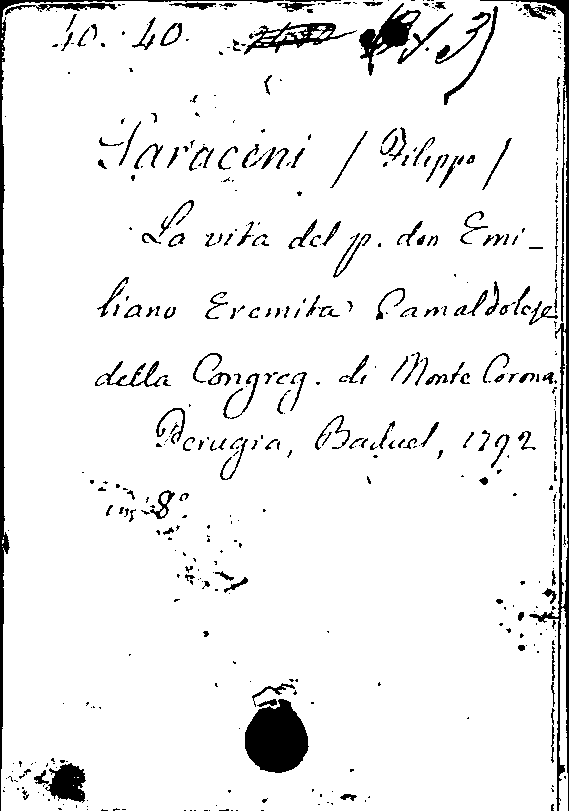 40. 40.
Saraceni / Filippo /
La vita del p. don Emi-
liano Eremita Camaldolese
della Congreg. di Monte Corona
Perugia, Baduel, 1792
in 8°